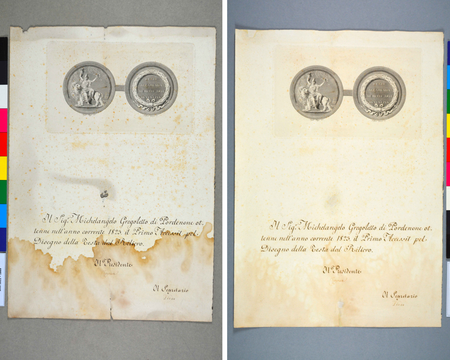 Il Sig.r Michelangelo Grigoletti di Pordenone ot.
tenne nell'anno corrente 1825. il Primo Accessit pel
Disegno della Testa dal Rilievo.
Il Presidente
Il Segretario
Il Sig.r Michelangelo Grigoletti di Pordenone ot.
tenne nell'anno corrente 1825. il Primo Accessit pel
Disegno della Testa dal Rilievo.
Il Presidente
Il Segretario